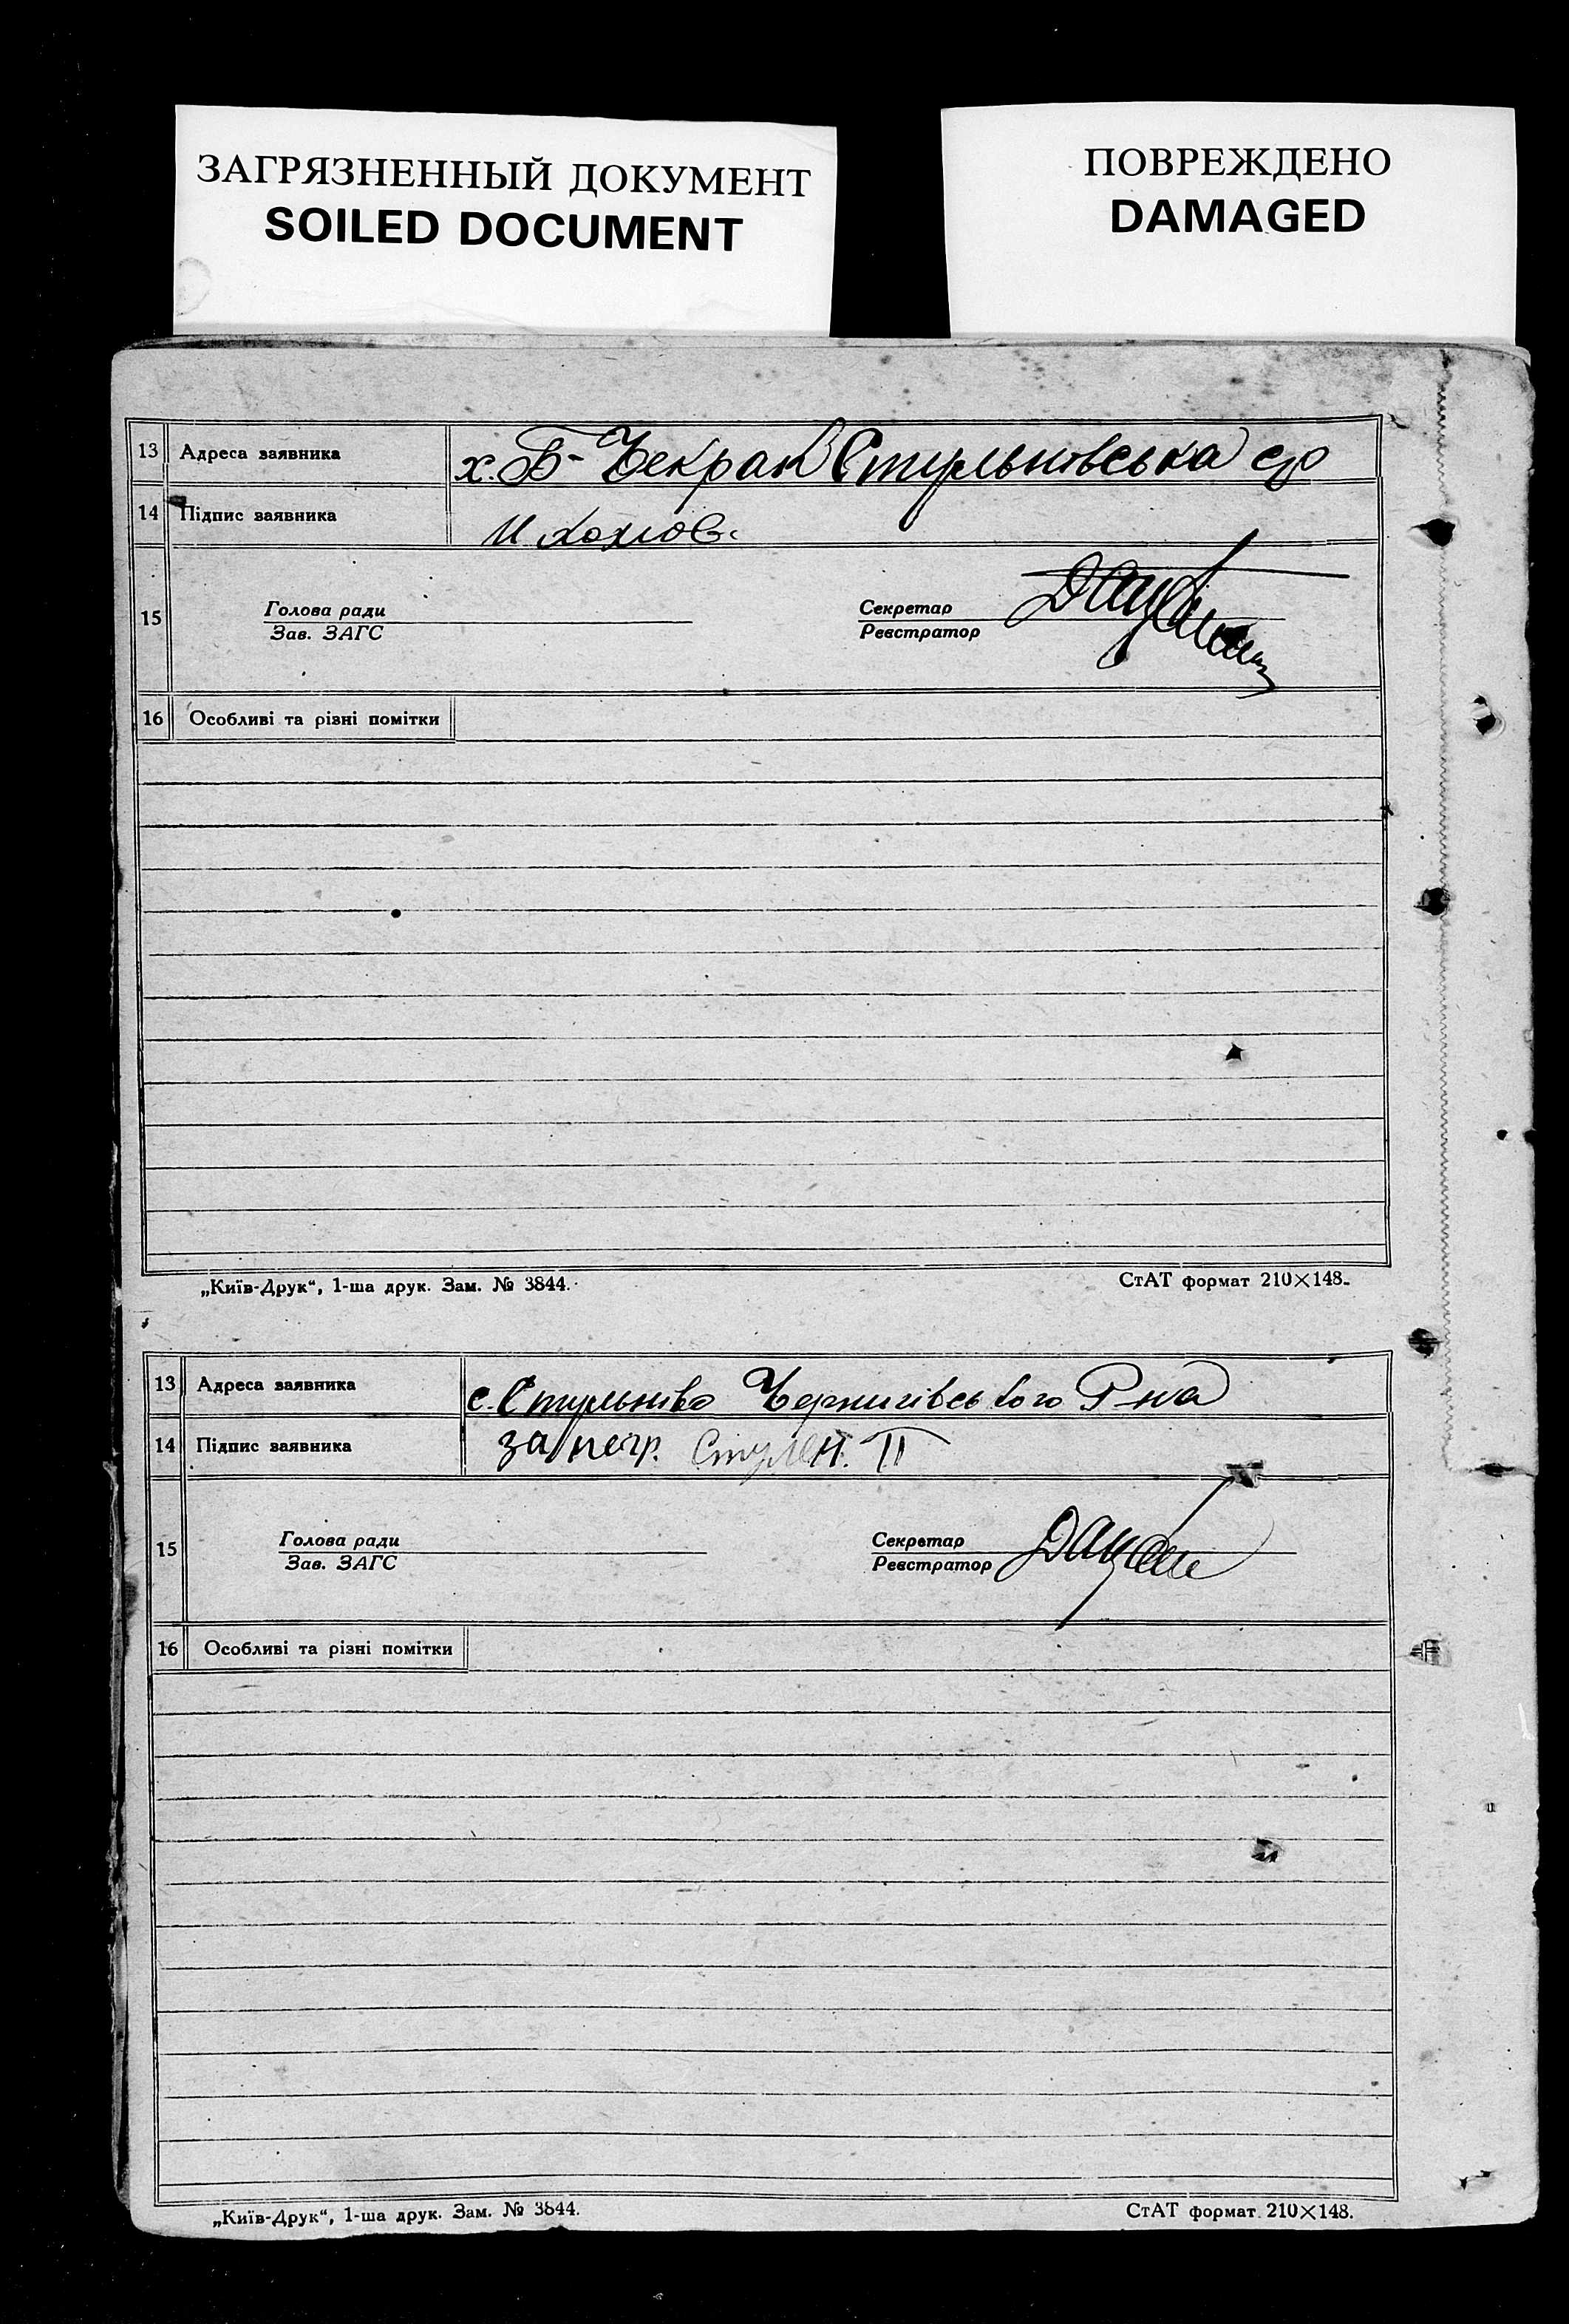 ЗАГРЯЗНЕННЫЙ ДОКУМЕНТ
SOILED DOCUMENT
ПОВРЕЖДЕНО
DAMAGED
13 Адреса заявника х. Б- Стульнівська ср
14 Підпис заявника И
15 Голова ради Секретар
Зав. ЗАГС Реєстратор
16 Особливі та різні помітки
„Київ-Друк“, 1-ша друк. Зам. № 3844. СтАТ формат 210×148.
13 Адреса заявника с. Стульніво Чернигівського Р-на
14 Підпис заявника за негр.
15 Голова ради Секретар
Зав. ЗАГС Реєстратор
16 Особливі та різні помітки
„Київ-Друк“, 1-ша друк. Зам. № 3844. СтАТ формат 210×148.